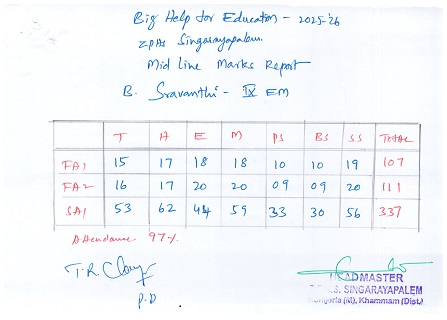 Big Help for Education - 2025-26
ZPHS Singarayapalem
Mid Line Marks Report
B. Sravanthi - IX EM
T H E M PS BS SS TOTAL
FA1 15 17 18 18 10 10 19 107
FA2 16 17 20 20 09 09 20 111
SA1 53 62 44 59 33 30 56 337
Attendance 97%
T.R.
P.D
HEADMASTER
SINGARAYAPALEM
(M), Khammam (Dist.)